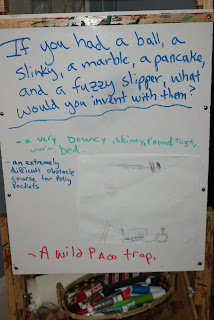 If you had a ball, a
slinky, a marble, a pancake,
and a fuzzy slipper, what
would you invent with them?
- a very bouncy, skinny, round,
warm, bed.
- an extremely
difficult obstacle
course for Polly
Pockets
- A wild PACO trap.